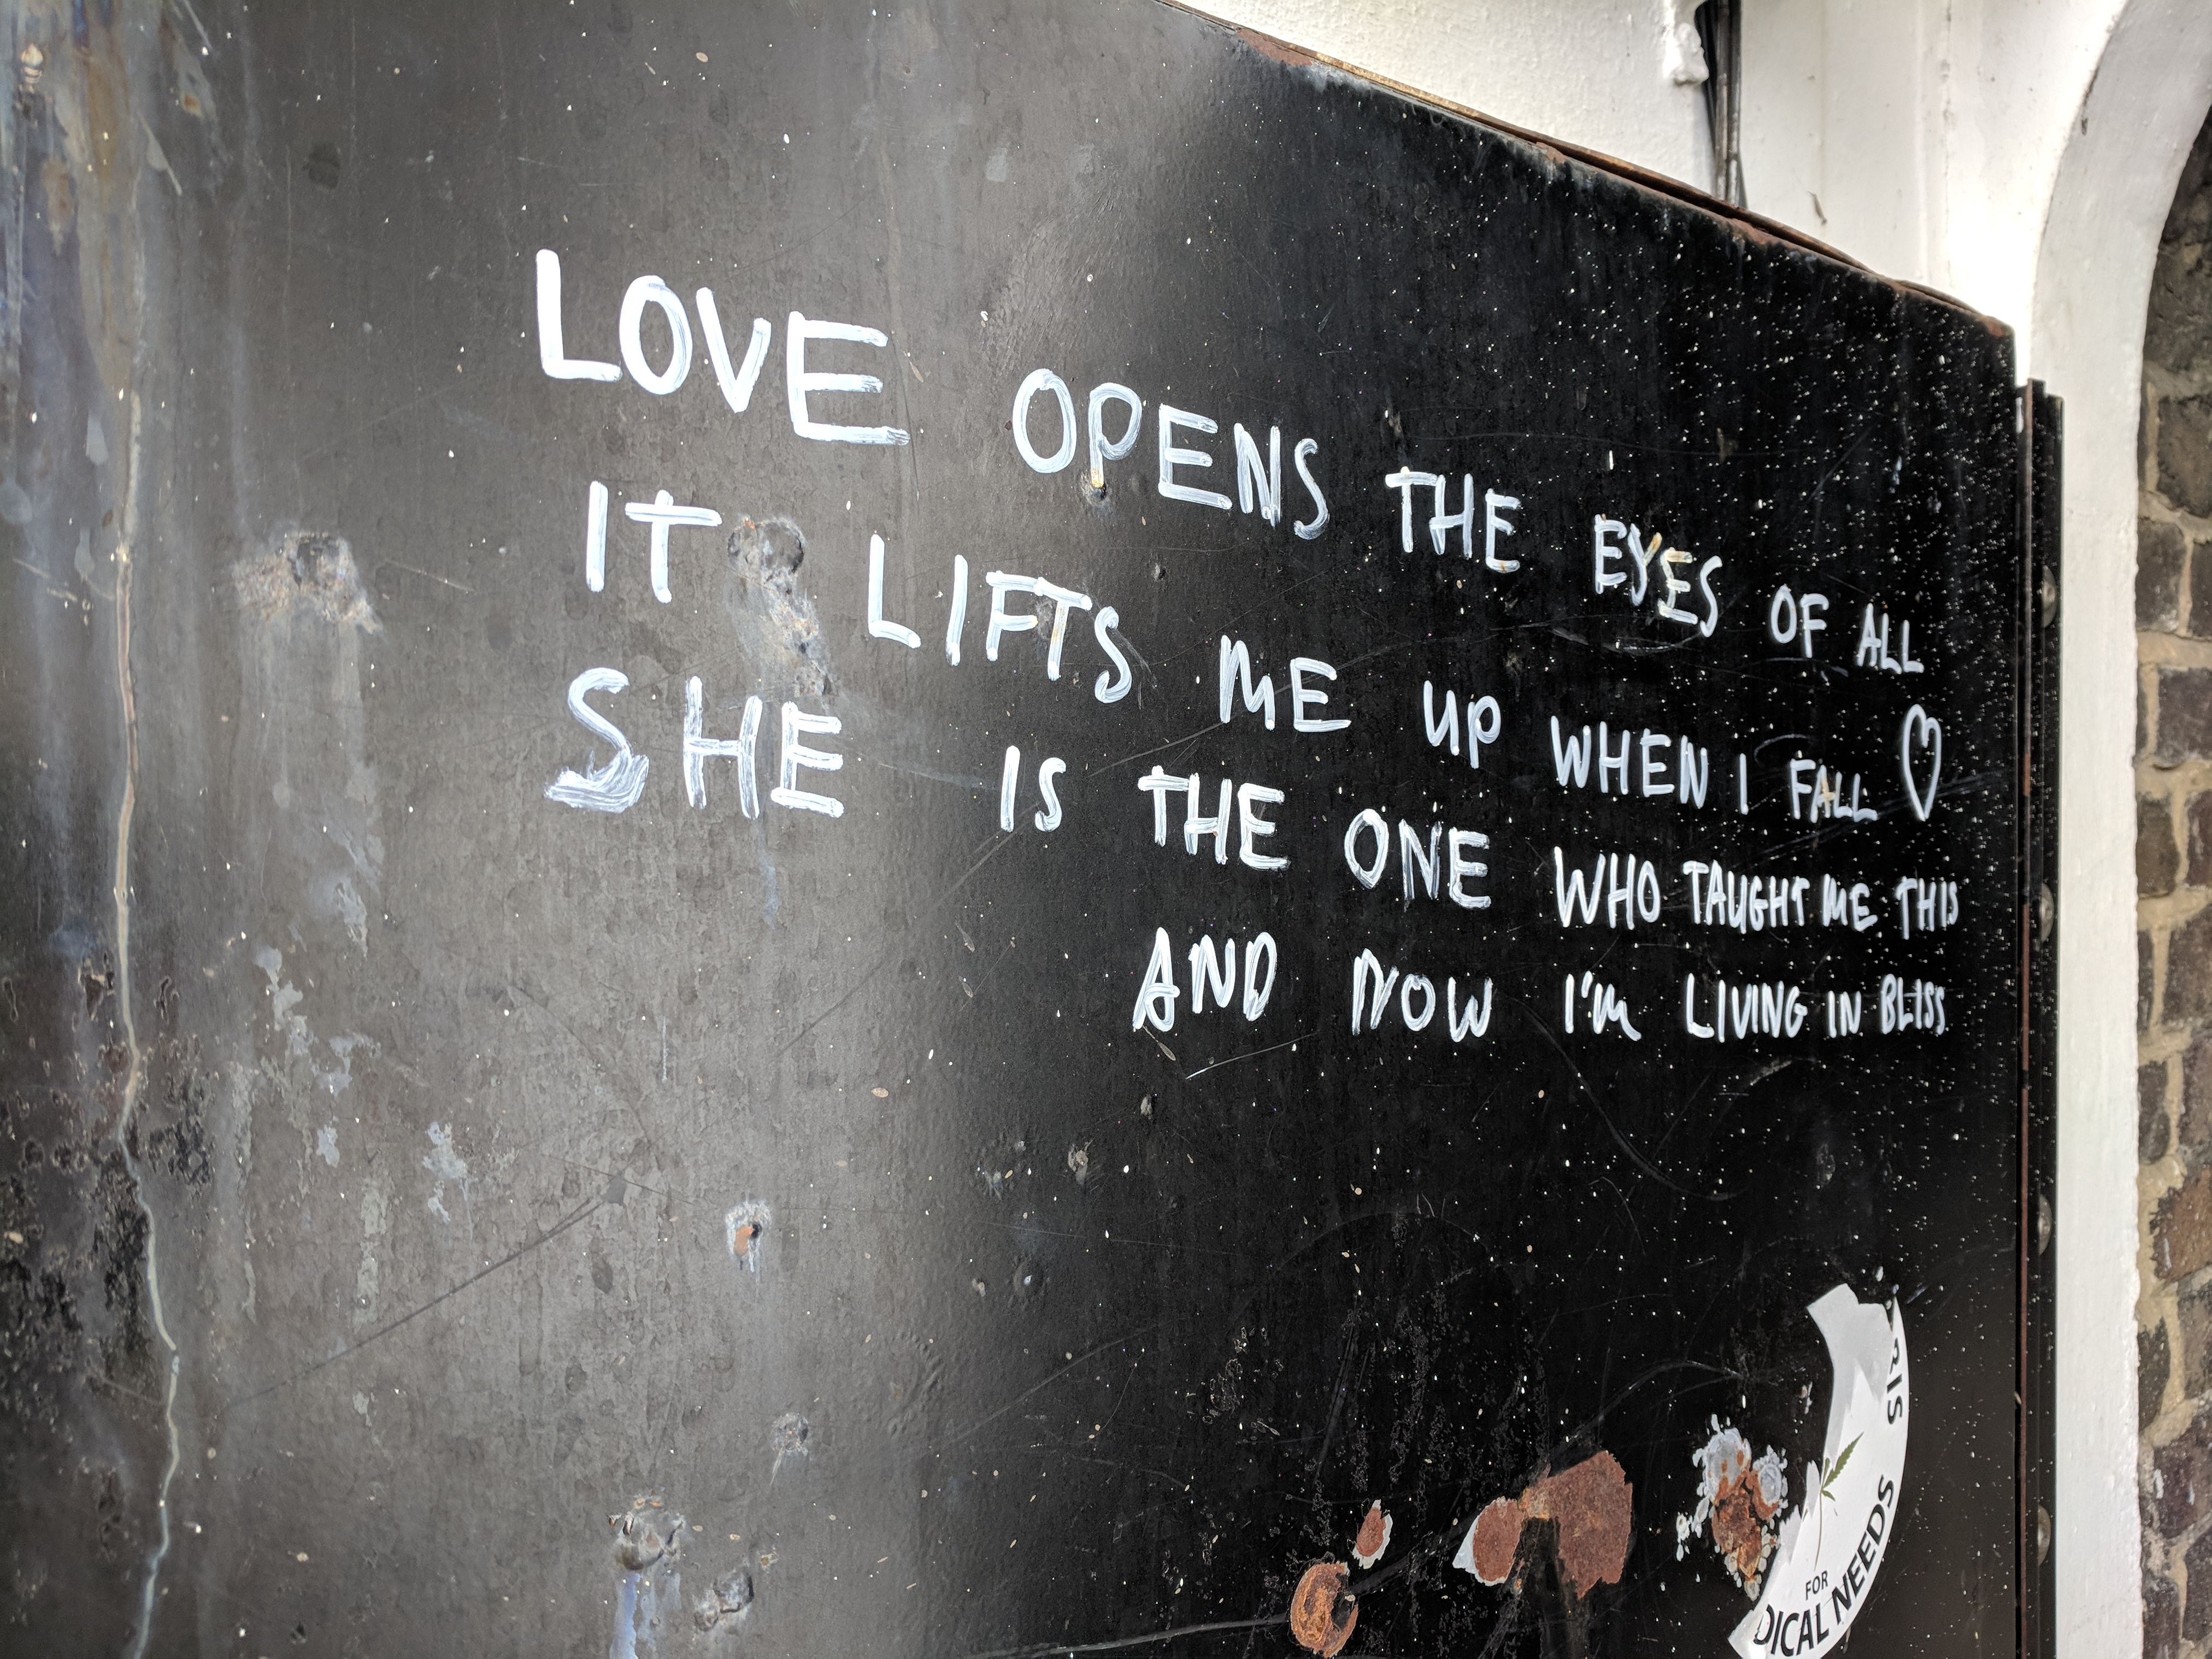 LOVE OPENS THE EYES OF ALL
IT LIFTS ME UP WHEN I FALL ♡
SHE IS THE ONE WHO TAUGHT ME THIS
AND NOW I'M LIVING IN BLISS
RIS
FOR
DICAL NEEDS